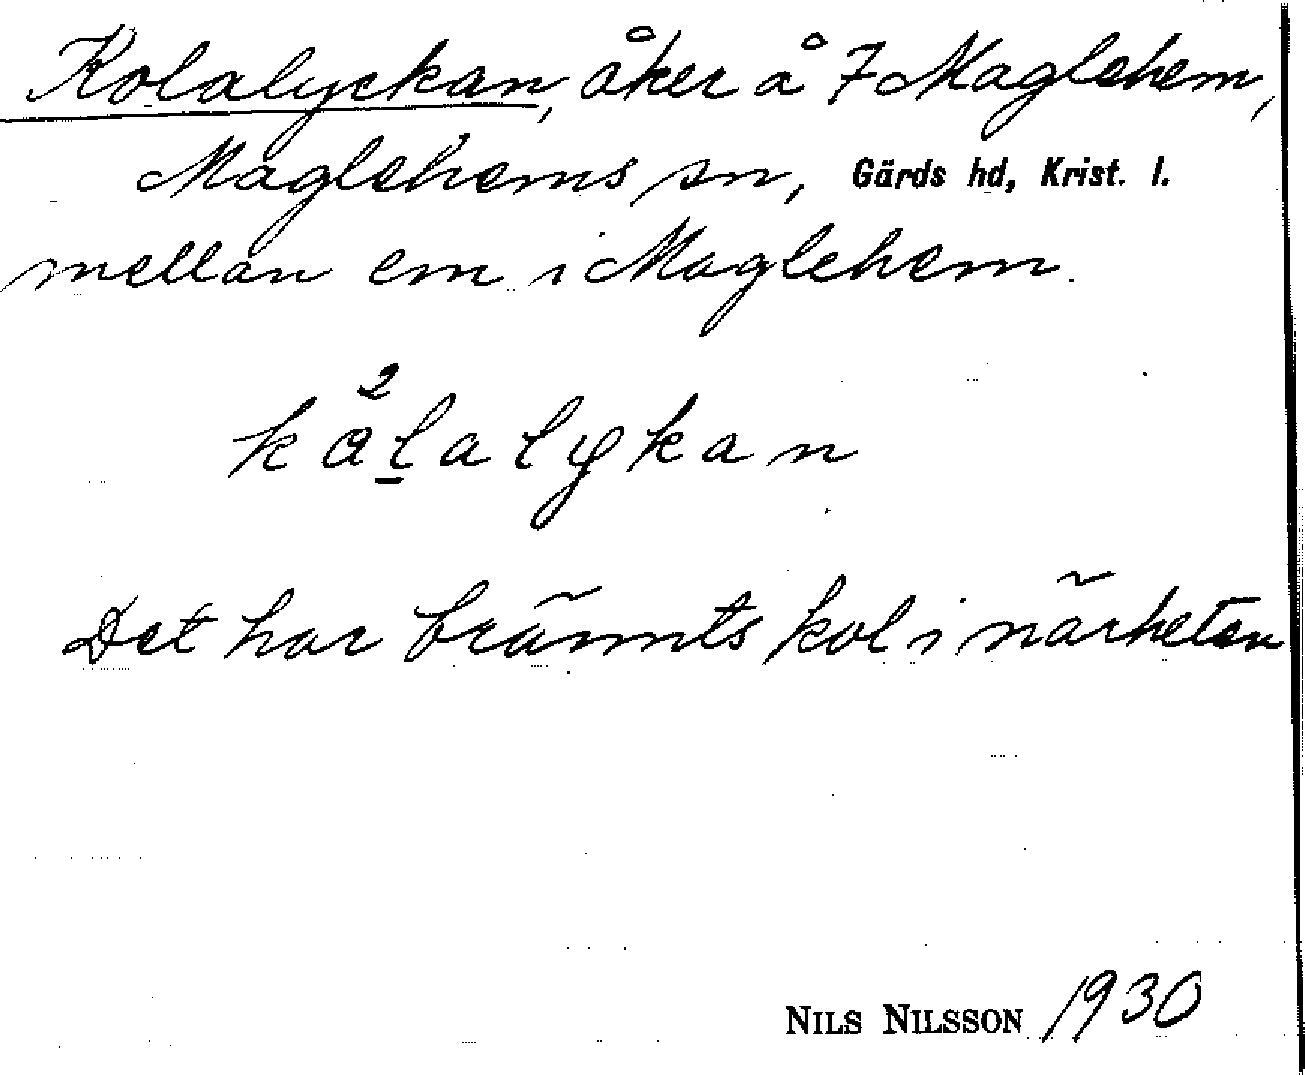 Kolalyckan, åker å 7 Maglehem,
Maglehems sn, Gärds hd, Krist. l.
mellan em i Maglehem.
kå²lalykan
Det har brännts kol i närheten
NILS NILSSON 1930